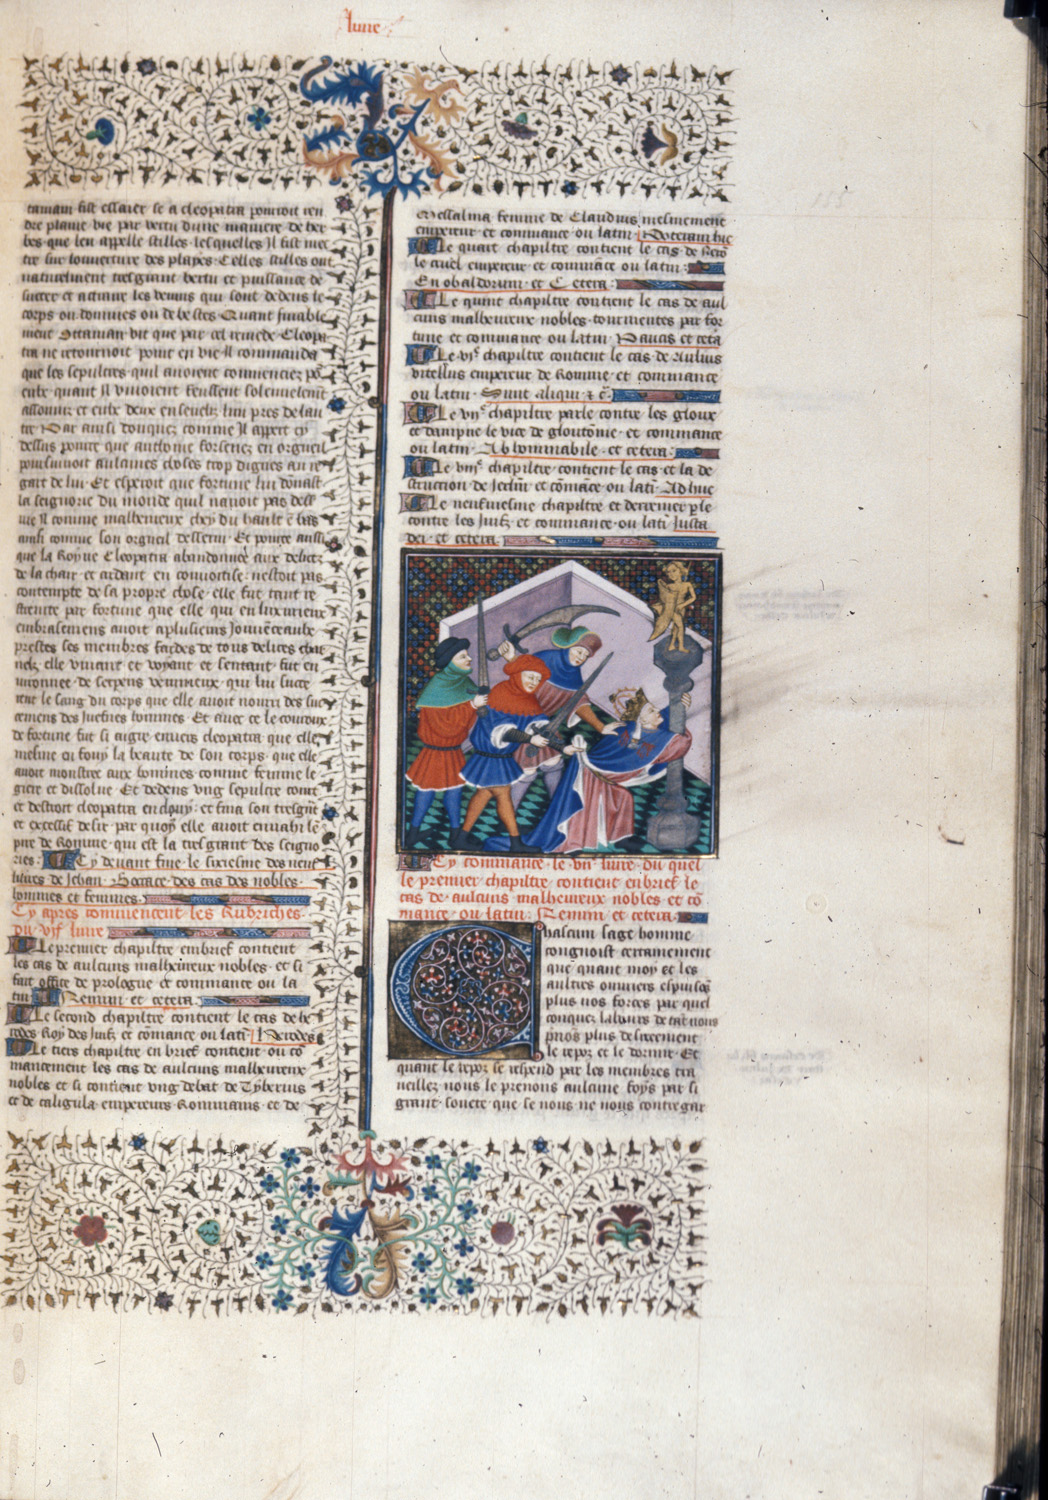 liure
tauiam fist essaier se a cleopatra pourroit ren
dre plaine vie par vertu dune maniere de ber
bes que len appelle stilles lesquelles Il fist mec
tre sur louuerture des plaies Celles stilles ont
naturelment tresgrant vertu et puissance de
succer et actraire les venins qui sont dedens le
corps ou dommes ou de bestes Quant finable
ment Octauian vit que par cel remede Cleopa
tra ne retournoit point en vie Il commanda
que les sepultres quil auoient commenciez
quant Il viuoient feussent solennelment
assouuiz et eulx deux enseueliz lun pres de lau
tre Par ainsi donques comme Il appert cy
dessus pource que anthoine forsenez en orgueil
poursuiuoit aulcunes choses trop dignes au re
gart de lui Et esperoit que fortune lui donnast
la seignorie du monde quil nauoit pas
Il comme malheureux chey du hault e bas
ainsi comme son orgueil desseruit Et pource aussi
que la Royne Cleopatra abandonnee aux delicez
de la char et ardant en conuoitise nestoit pas
contempte de sa propre chose elle fut tant re
strainte par fortune que elle qui en luxurieux
embracemens auoit a plusieurs Jouuenceaulx
prestes ses membres fardes de tous delices char
nelz elle viuant et voyant et sentant fut en
uironnee de serpens venimeux qui lui succe
rent le sang du corps que elle auoit nourri des suc
cemens des Juesnes hommes Et auec ce le couroux
de fortune fut si aigre enuers cleopatra que elle
mesme en fouy la beaute de son corps que elle
auoit monstree aux hommes comme femme le
giere et dissolue Et dedens vng sepulcre
et destroit cleopatra et fina son tresgrant
et excessif desir par quoy elle auoit enuahi
pire de Romme qui est la tresgrant des seigno
ries Cy deuant fine le sixiesme des neuf
liures de Jehan Bocace des cas des nobles
hommes et femmes
Cy apres commencent les Rubriches
du vije liure
Le premier chapitre en brief contient
les cas de aulcuns malheureux nobles et si
fait office de prologue et commance ou la
tin Remini et cetera
Le second chapitre contient le cas de he
rodes Roy des Juifz et commance ou latin Herodes
Le tiers chapitre en brief contient ou co
mancement les cas de aulcuns malheureux
nobles et si contient vng debat de Tyberius
et de caligula empereurs Rommains et de
Messalina femme de Claudius mesmement
empereur et commance ou latin
Le quart chapitre contient le cas de Nero
le cruel empereur et commance ou latin
En obaldorum et Cetera
Le quint chapitre contient le cas de aul
cuns malheureux nobles tourmentes par for
tune et commance ou latin Paucis et cetera
Le vje chapitre contient le cas de Aulius
vitellus empereur de Romme et commance
ou latin Sunt aliqui et c
Le vije chapitre parle contre les gloux
et dampne le vice de gloutonie et commance
ou latin Abhominabile et cetera
Le viije chapitre contient le cas et la de
struction de Jerusalem et commance ou latin Ad huc
Le neufuiesme chapitre et derrenier parle
contre les Juifz et commance ou latin Justa
dei et cetera
Cy commance le vije liure du quel
le premier chapitre contient en brief le
cas de aulcuns malheureux nobles et co
mance ou latin Remini et cetera
Chascun sage homme
congnoist certainement
que quant moy et les
aultres ouuriers
plus nos forces par quel
conques labours de tant nous
prenons plus doulcement
le repoz et le dormir Et
quant le repoz se respend par les membres tra
ueillez nous le prenons aulcune foys par si
grant souete que se nous ne nous contregar